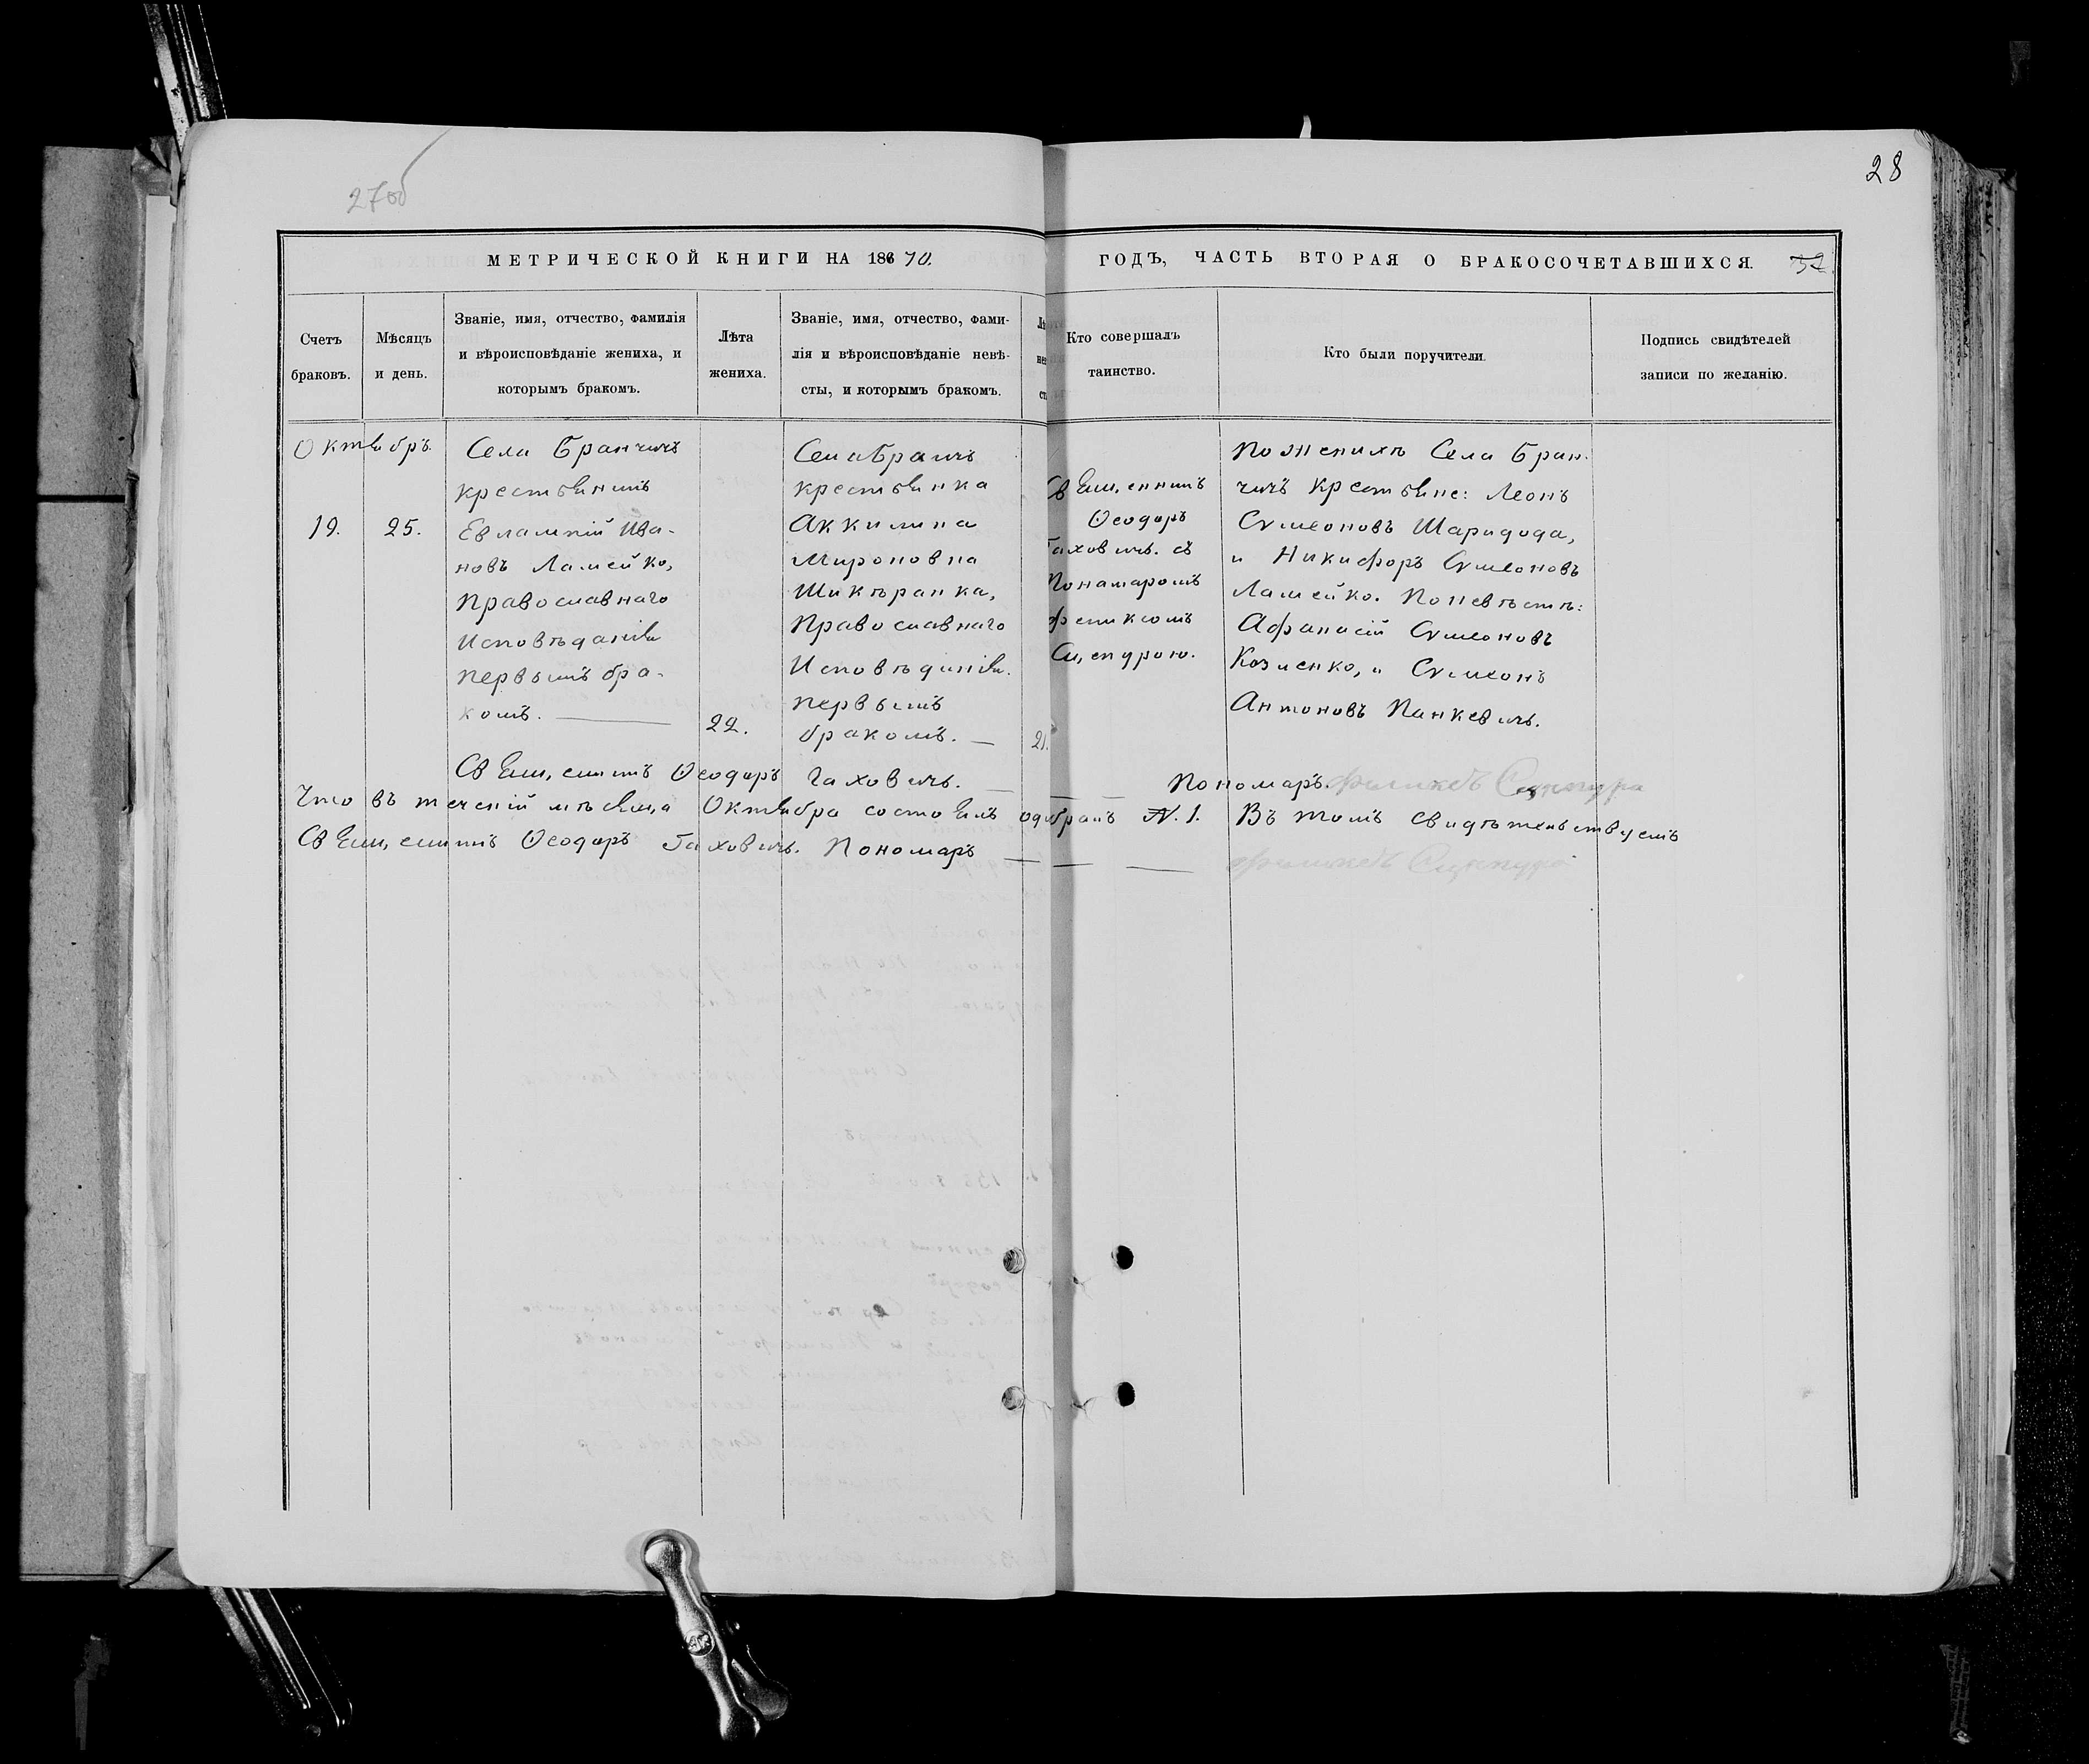 27об
28
МЕТРИЧЕСКОЙ КНИГИ НА 18670. ГОДЪ, ЧАСТЬ ВТОРАЯ О БРАКОСОЧЕТАВШИХСЯ.
Счетъ
браковъ.
Мѣсяцъ
и день.
Званіе, имя, отчество, фамилія
и вѣроисповѣданіе жениха, и
которымъ бракомъ.
Лѣта
жениха.
Званіе, имя, отчество, фами-
лія и вѣроисповѣданіе невѣ-
сты, и которымъ бракомъ.
Кто совершалъ
таинство.
Кто были поручители.
Подпись свидѣтелей
записи по желанію.
Октябръ.
19.
25.
Села Бранчичъ
крестьянинъ
Евлампій Ива-
новъ Ламейко,
православнаго
Исповѣданія
первымъ бра-
комъ.
22.
крестьянка
Аккилина
Мироновна
Православнаго
Исповѣданія.
первымъ
бракомъ.
21.
Священникъ
Ѳеодоръ
Гаховичъ. съ
Пономаромъ
По женихѣ Села Бран-
чичъ крестьяне: Леонъ
Сѵмеоновъ Шаридода,
и Никифоръ Сѵмеоновъ
Ламейко. По невѣстѣ:
Афанасій Сѵмеоновъ
Козленко, и Сѵмеонъ
Антоновъ Панкевичъ.
Священникъ Ѳеодоръ Гаховичъ. Пономаръ
Что въ теченій мѣсяца Октября состоялъ одибракъ N. 1. Въ томъ свидѣтельствуемъ
Священникъ Ѳеодоръ Гаховичъ. Пономаръ